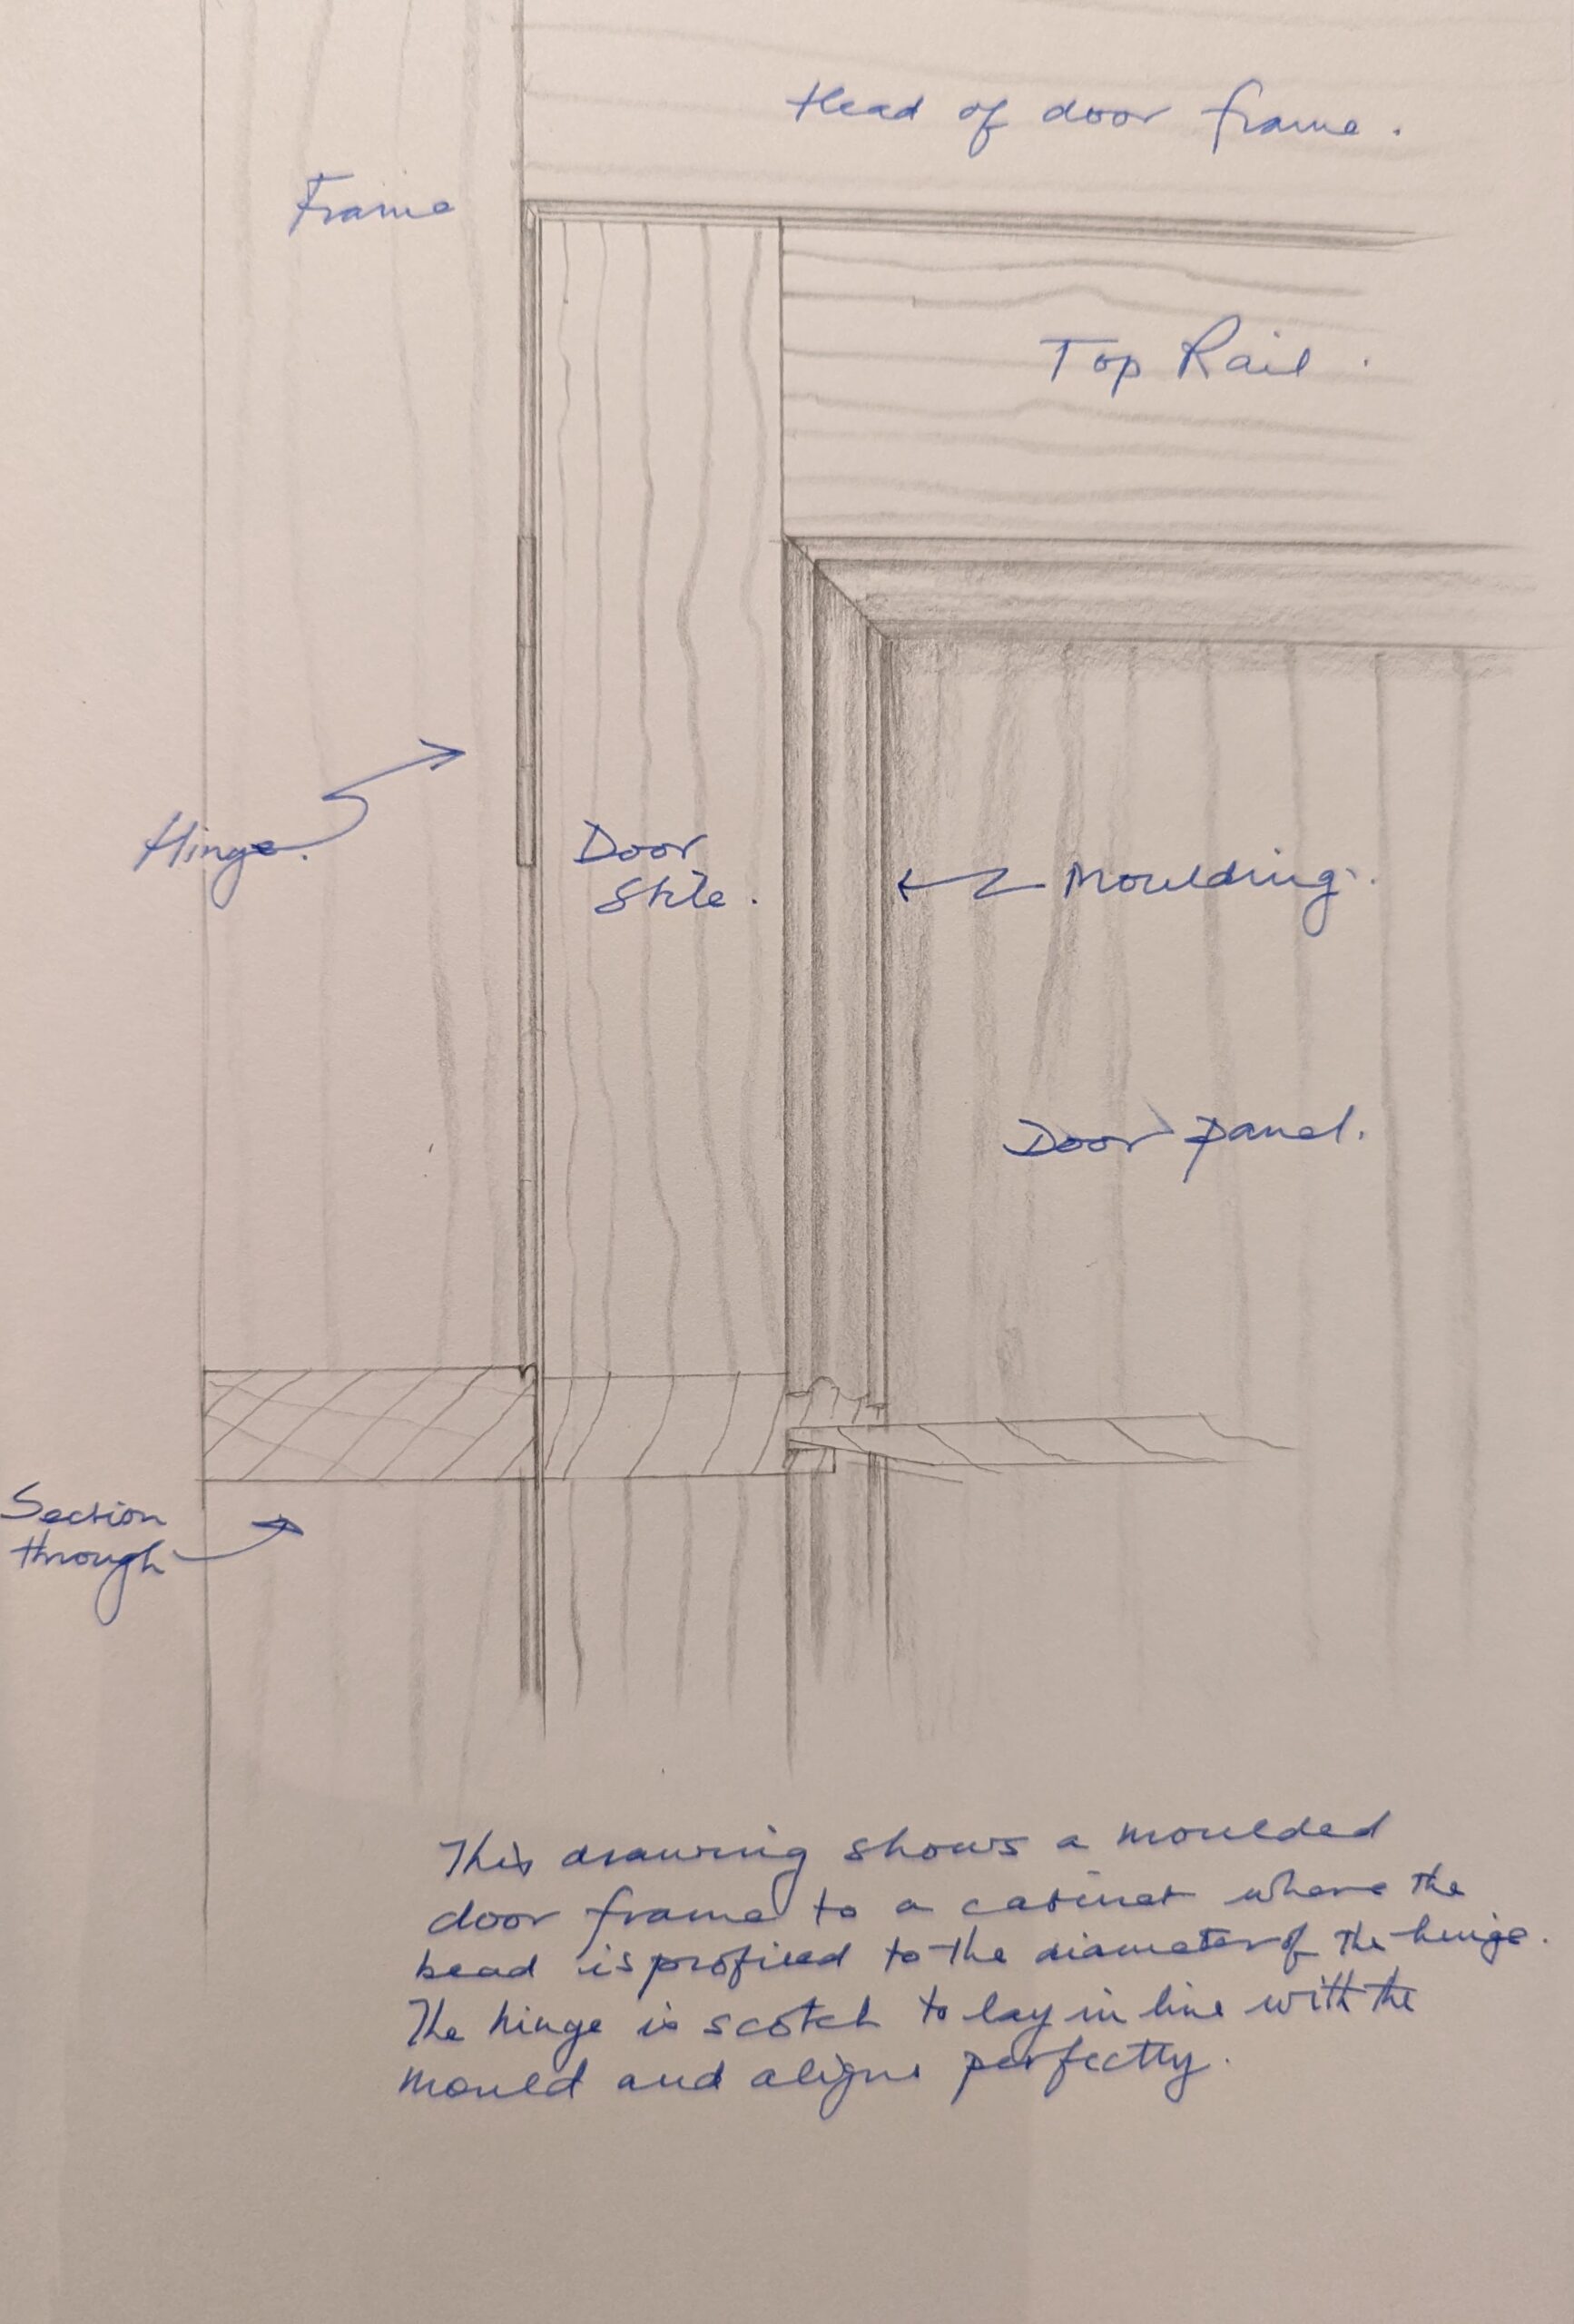 Head of door frame.
Frame
Top Rail.
Hinge.
Door
Stile.
Moulding.
Door panel.
Section
through
This drawing shows a moulded
door frame to a cabinet where the
bead is profiled to the diameter of the hinge.
The hinge is scotch to lay in line with the
mould and aligns perfectly.